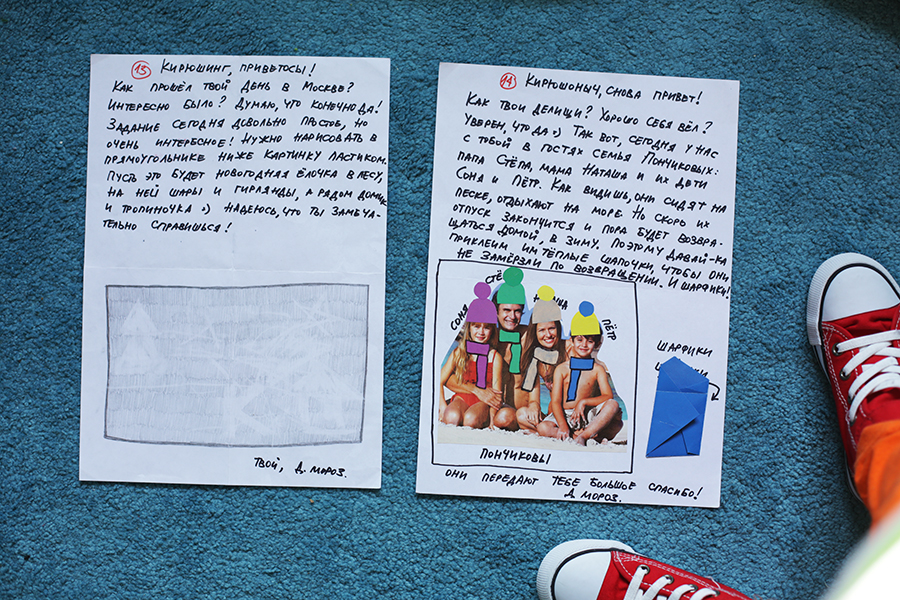 13 Кирюшинг, приветосы!
Как прошёл твой день в Москве?
Интересно было? Думаю, что конечно да!
Задание сегодня довольно простое, но
очень интересное! Нужно нарисовать в
прямоугольнике ниже картинку ластиком.
Пусть это будет новогодняя ёлочка в лесу,
на ней шары и гирлянды, а рядом домик
и тропиночка :) Надеюсь, что ты замеча-
тельно справишься!
Твой, Д. Мороз.
14 Кирюшоныч, снова привет!
Как твои делищи? Хорошо себя вёл?
Уверен, что да :) Так вот, сегодня у нас
с тобой в гостях семья Пончиковых:
папа Стёпа, мама Наташа и их дети
Соня и Пётр. Как видишь, они сидят на
песке, отдыхают на море. Но скоро их
отпуск закончится и пора будет возвра-
щаться домой, в зиму. Поэтому давай-ка
приклеим им тёплые шапочки, чтобы они
не замёрзли по возвращении. И шарфики!
Соня
Пётр
шарфики
Пончиковы
Они передают тебе большое спасибо!
Д. Мороз.